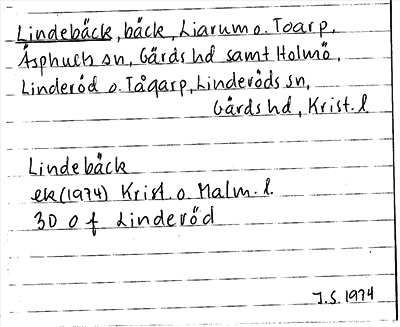 Lindebäck, bäck, Liarum o. Toarp,
Äsphults sn, Gärds hd samt Holmö,
Linderöd o. Tågarp, Linderöds sn,
Gärds hd, Krist. l
Lindebäck
ek (1974) Krist. o Malm. l.
3D 0 f Linderöd
J.S. 1974